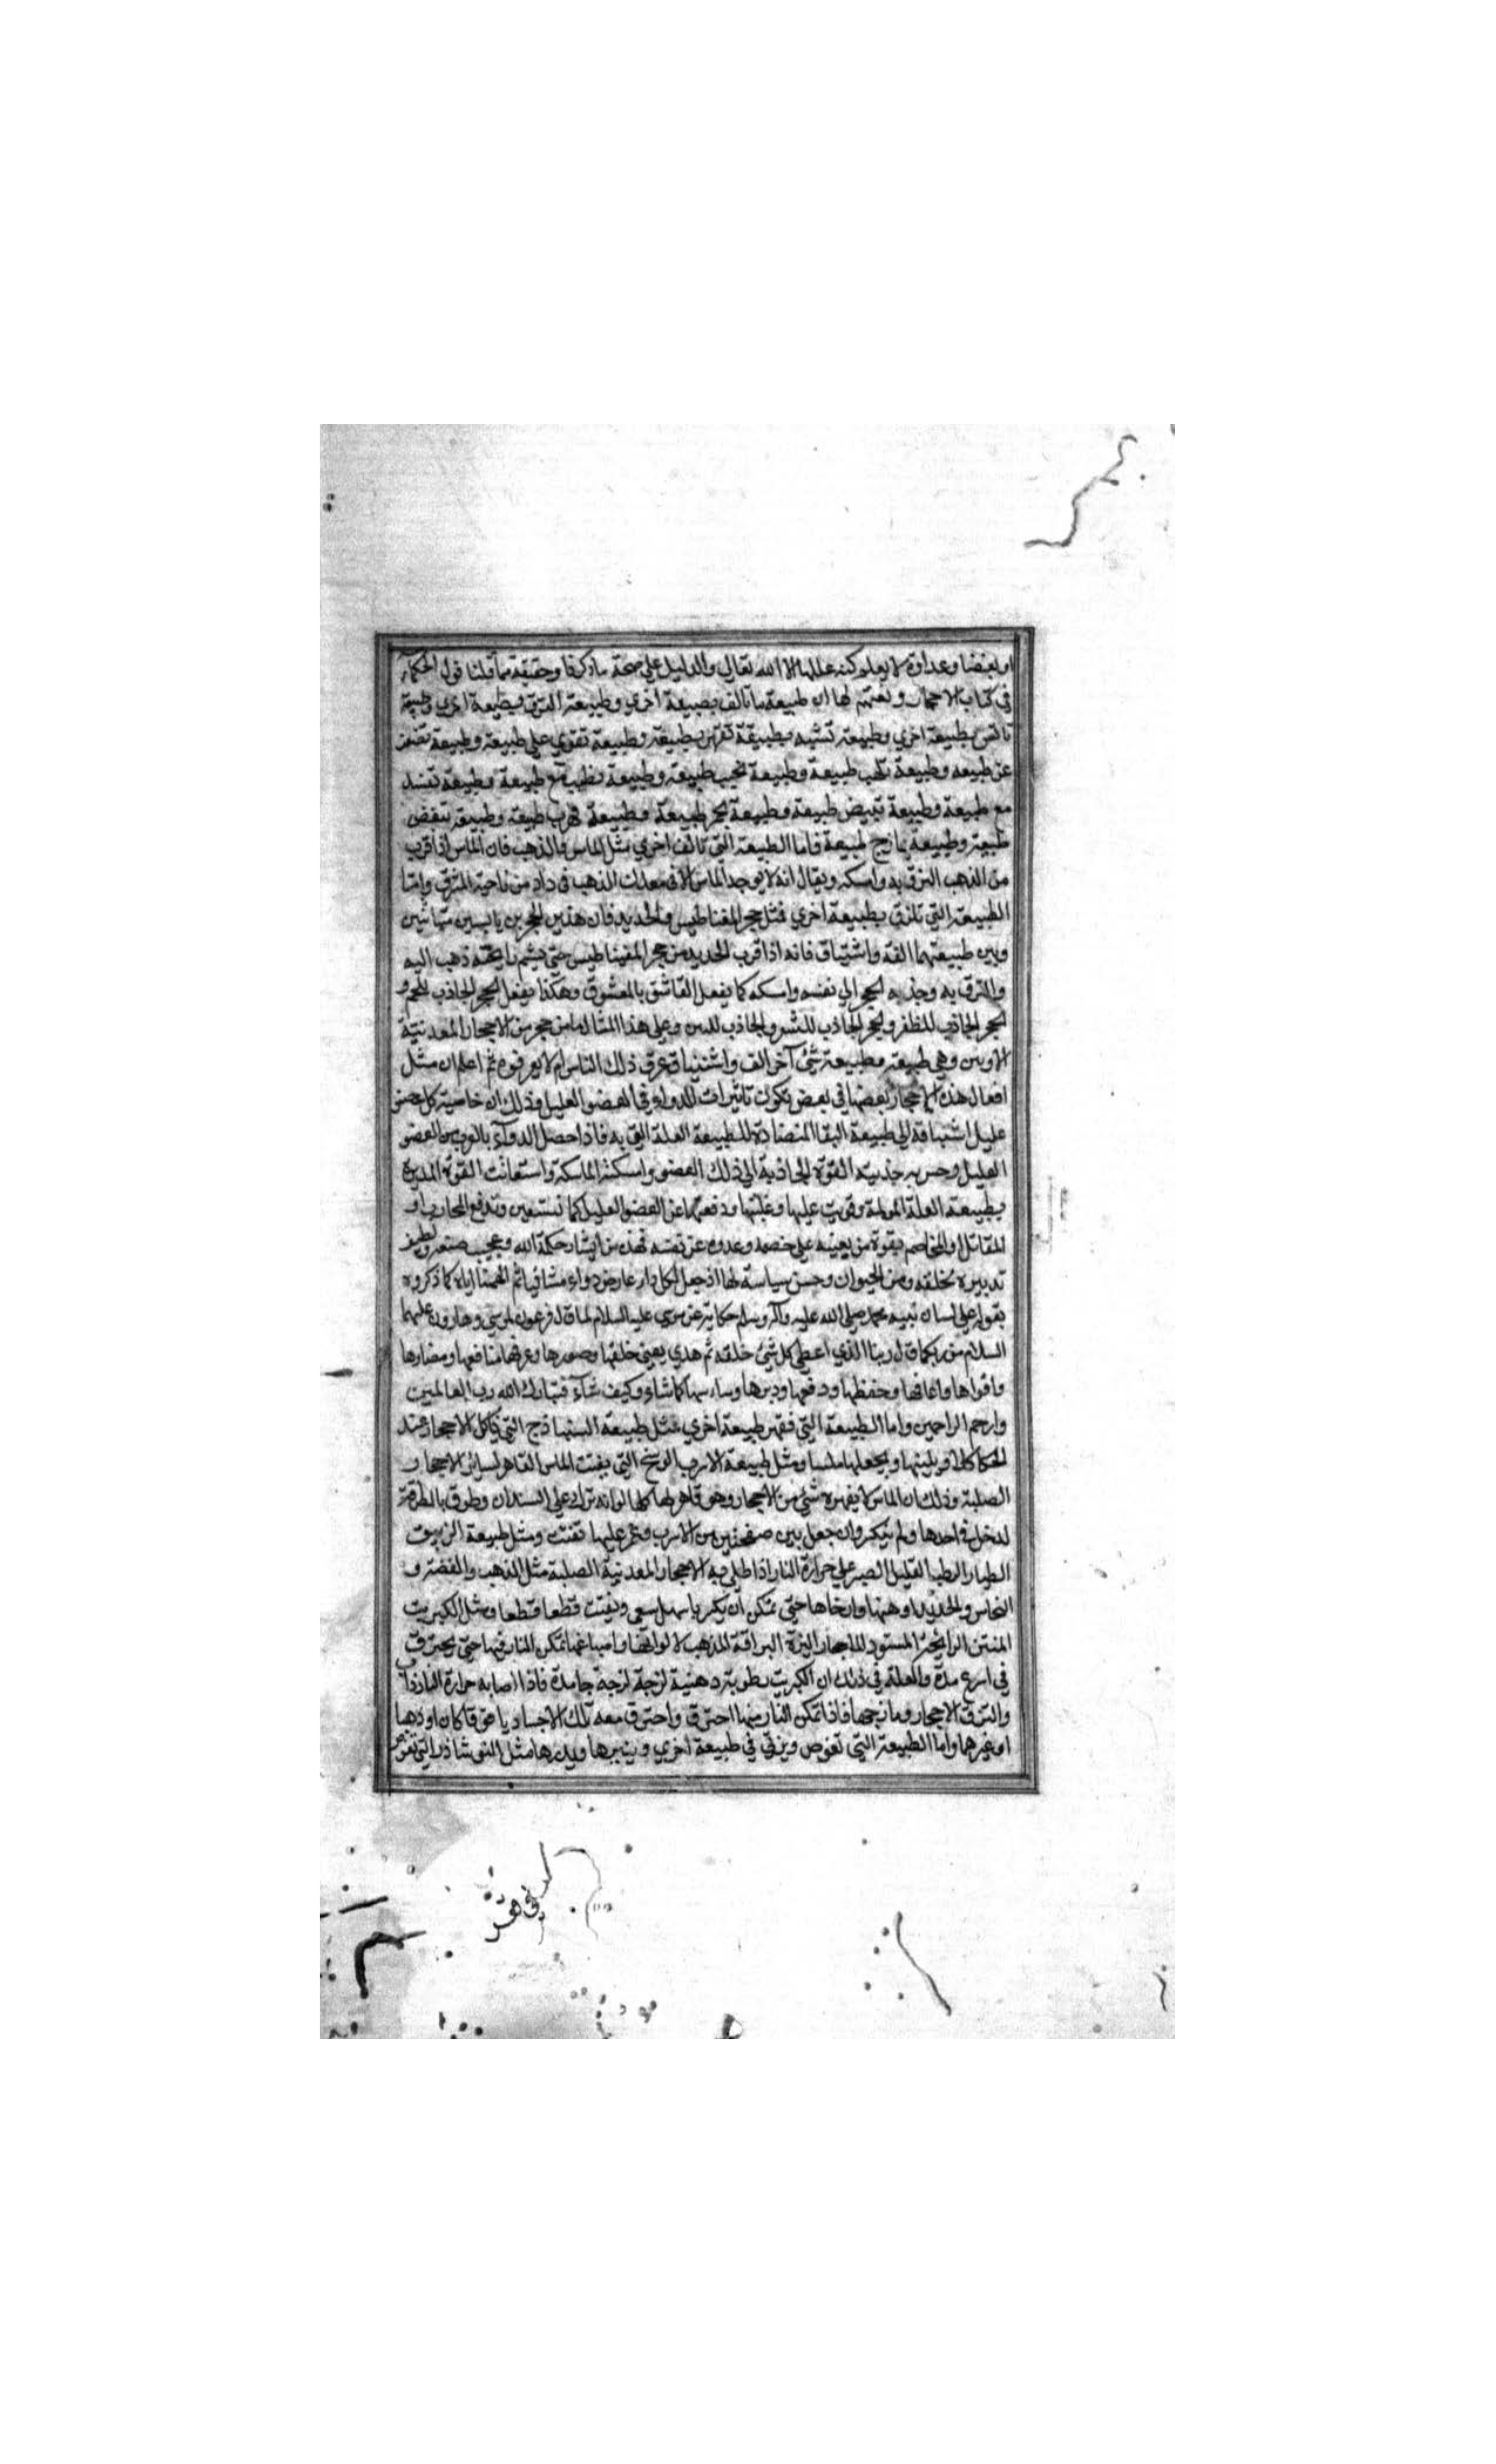 او بغضا وعداوة لا يعلم كنه عللها الا الله تعالي والدليل علي صحة ما ذكرنا وحقيقة ما قلنا قول الحكمآء
في كتاب الاحجار ونعتهم لها ان طبيعة ما تالف بطبيعة اخري وطبيعة التزق بطبيعة اخري وطبيعة
تانس بطبيعة اخري وطبيعة تشبه بطبيعة تقهر بطبيعة وطبيعة تقوي علي طبيعة وطبيعة تضعف
عن طبيعه وطبيعة تلهب طبيعة وطبيعة تحب طبيعة وطبيعة تطيب مع طبيعة وطبيعة تفسد
مع طبيعة وطبيعة تبيض طبيعة وطبيعة تحمر طبيعة وطبيعة تهرب طبيعة وطبيعة تبغض
طبيعة وطبيعة تمازج طبيعة فاما الطبيعة التي تالف اخري مثل الماس والذهب فان الماس اذا قرب
من الذهب التزق به وامسكه ويقال انه لا يوجد الماس الا في معدن الذهب في داد من ناحية المشرق واما
الطبيعة التي تلزق بطبيعة اخري فمثل حجر المغناطيس والحديد فان هذين الحجرين يابسين
وبين طبيعتهما الفة واشتياق فانه اذا قرب الحديد من حجر المغيناطيس حتي يشم رايحته ذهب اليه
والتزق به وجذبه الحجر الي نفسه وامسكه كما يفعل العاشق بالمعشوق وهكذا يفعل الحجر الجاذب للحم و
الحجر الجاذب للظفر والحجر الجاذب للشعر والجاذب للتبن وعلي هذا المثال ما من حجر من الاحجار المعدنية
الا وبين وهي طبيعة وطبيعة شئ آخر الف واشتياق عرف ذلك الناس ام لا يعرفوه ثم اعلم ان مثل
افعال هذه الاحجار بعضها في بعض تكون تاثيرات الدواء في العضو العليل وذلك ان خاصية كل عضو
عليل اشتياقه الي طبيعة المتضادة للطبيعة العلة التي به فاذا حصل الدوآء بالقرب من العضو
العليل وحس به جذبته القوة الجاذبة الي ذلك العضو وامسكته الماسكة واستعانت القوة المدبرة
بطبيعة العلة المولمة وقويت عليها وغلبتها ودفعتها عن العضو العليل كما يستعين ويدفع المحارب او
المقاتل او المخاصم بقوة من يعينه علي خصمه وعدوه عن نفسه فهذه من حكمة الله وعجيب صنعه ولطيف
تدبيره بخلقه ومن الحيوان وحسن سياسة لها اذ جعل لكل دار عارض دواء مشافيا ثم الهمنا اياه كما ذكروه
بقوله علي لسان نبيه محمد صلي الله عليه وآله وسلم حكاية عن موسي عليه السلام لما قال فرعون لموسي وهارون عليهما
السلام من ربكما قال ربنا الذي اعطي كل شئ خلقه ثم هدي يعني خلقها وصورها وعرفها منافعها ومضارها
واقواها واعانها وحفظها ودفعها ودبرها وساسها كما شاء وكيف شآء فتبارك الله رب العالمين
وارحم الراحمين واما الطبيعة التي تقهر طبيعة اخري مثل طبيعة السنباذج التي تاكل الاحجار عند
الحكاكه ويلينها ويجعلها ملسا ومثل طبيعة الاسرب الوسخ التي يفتت الماس القاهر لسائر الاحجار
الصلبة وذلك ان الماس لا يقهره شئ من الاحجار وهو قاهر لها كلها لو انه ترك علي السندان وطرق بالمطرقة
لدخل في احدها ولم ينكسر وان جعل بين صفحتين من الاسرب وغمر عليها تفتت ومثل طبيعة الزيبق
الطيار الرطب القليل الصبر علي حرارة النار اذا طلي به الاحجار المعدنية الصلبة مثل الذهب والفضة و
النحاس والحديد اوهنها وارخاها حتي تمكن ان يكسر باسهل سعي وتفتت قطعا قطعا ومثل الكبريت
المنتن الرايحة المسود للاحجار النيرة البراقة المذهب لالوانها واصباغها تمكن النار فيها حتي يحترق
في اسرع مدة والعلة في ذلك ان الكبريت رطوبة دهنية لزجة لزجة جامدة فاذا اصابه حرارة النار ذاب
والتزق الاحجار ومازجها فاذا تمكن النار منها احترق واحترق معه تلك الاجساد ياقوتا كان او ذهبا
او غيرهما واما الطبيعة التي تغوص وينقي في طبيعة اخري وينيرها مثل النوشاذر التي تغوص